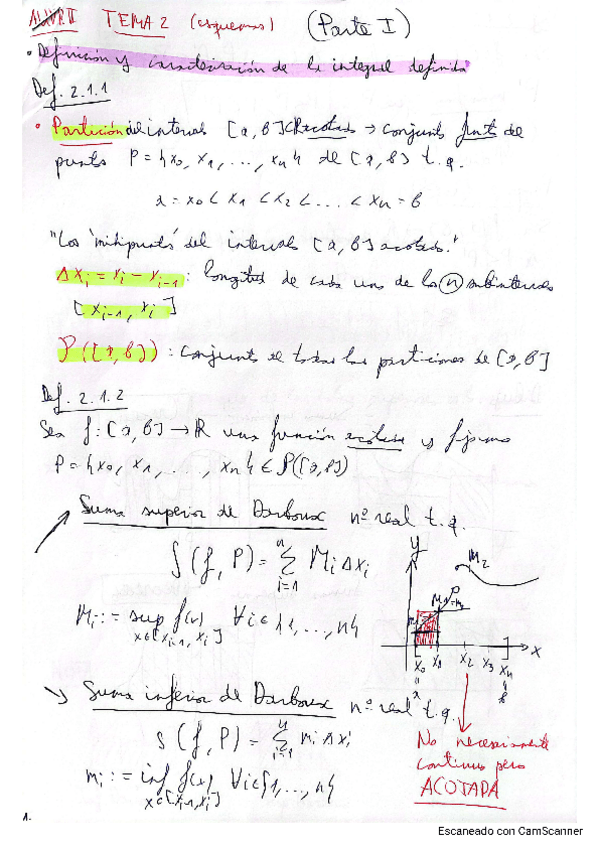 TEMA 2 (esquemas) (Parte I)
• Definición y caracterización de la integral definida
Def. 2.1.1
• Partición del intervalo [a, b]⊂R acotado → conjunto finito de
puntos P = {x₀, x₁, ..., xₙ} de [a, b] t.q.
a = x₀ < x₁ < x₂ < ... < xₙ = b
"Los del intervalo [a, b] acotado."
Δxᵢ = xᵢ - xᵢ₋₁ : longitud de cada uno de los (n) subintervalos
[xᵢ₋₁, xᵢ]
P([a, b]) : conjunto de todas las particiones de [a, b]
Def. 2.1.2
Sea f: [a, b] → R una función acotada y fijamos
P = {x₀, x₁, ..., xₙ} ∈ P([a, b])
Suma superior de Darboux nº real t.q.
S(f, P) = Σⁿᵢ₌₁ Mᵢ Δxᵢ
Mᵢ := sup f(x) ∀i∈{1, ..., n}
x∈[xᵢ₋₁, xᵢ]
y
M₂
x₀ x₁ x₂ x₃ xₙ x
a b
Suma inferior de Darboux nº real t.q.
s(f, P) = Σⁿᵢ₌₁ mᵢ Δxᵢ
mᵢ := inf f(x) ∀i∈{1, ..., n}
x∈[xᵢ₋₁, xᵢ]
No necesariamente
continua pero
ACOTADA
1.
Escaneado con CamScanner